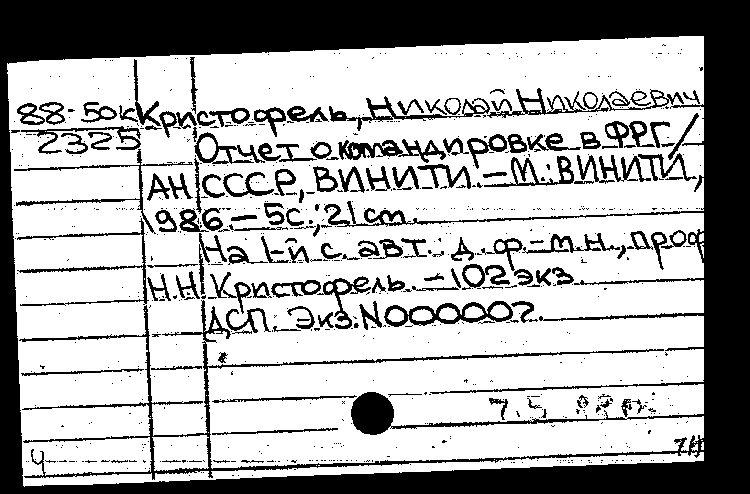 88-50к Кристофель, Николай Николаевич
2325 Отчет о командировке в ФРГ /
АН СССР, ВИНИТИ. – М.: ВИНИТИ,
1986. – 5с.; 21 cm.
На 1-й с. авт.: д. ф.-м.н., проф
Н.Н Кристофель. – 102 экз.
ДСП. Экз. N000007.
7.5
Ч